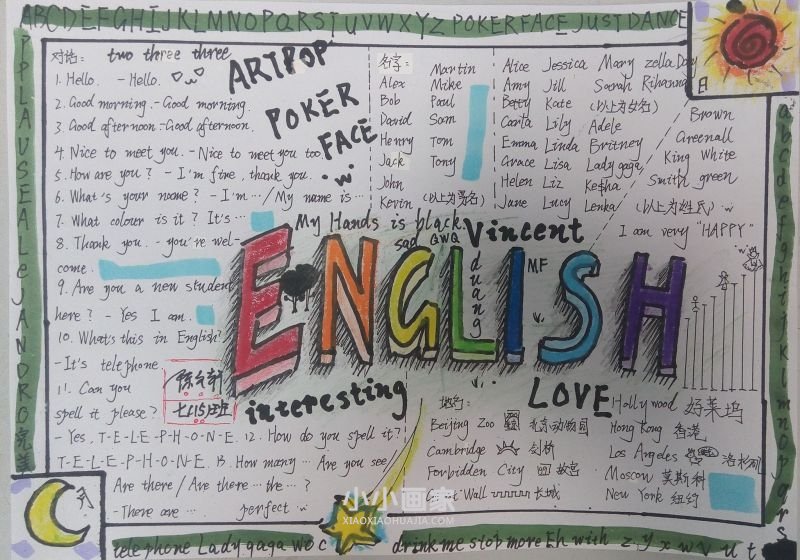 ABCDEFGHIJKLMNOPQRSTUVWXYZ POKERFACE JUST DANCE
APPLAUSE ALEJANDRO完美
对话: two three three
1. Hello. - Hello.
2. Good morning. - Good morning.
3. Good afternoon - Good afternoon.
4. Nice to meet you. - Nice to meet you too.
5. How are you? - I'm fine, thank you.
6. What's your name? - I'm… /My name is…
7. What colour is it? It's…
8. Thank you. - you're wel-
come.
9. Are you a new student
here? - Yes I am.
10. What's this in English?
- It's telephone
11. Can you
spell it please?
- Yes, T-E-L-E-P-H-O-N-E. 12. How do you spell it?
T-E-L-E-P-H-O-N-E. 13. How many … Are you see/
Are there / Are there …the …?
- There are … perfect
ARTPOP
POKER
FACE
名字:
Alex
Bob
David
Henry
Jack
John
Kevin (以上为男名)
Martin
Mike
Paul
Sam
Tom
Tony
Alice Jessica Mary zella Day
Amy Jill Sarah Rihanna
Betty Kate (以上为女名)
Carla Lily Adele
Emma Linda Britney
Grace Lisa Lady gaga
Helen Liz Ke$ha
Jane Lucy Lenka (以上为姓氏)
日
Brown
Greenall
King White
Smith green
I am very "HAPPY"
My Hands is black
sad QWQ
Vincent
duang
MF
ENGLISH
七15班
interesting
LOVE
地名:
Beijing Zoo 北京动物园
Cambridge 剑桥
Forbidden City 故宫
Great Wall 长城
Hollywood 好莱坞
Hong Kong 香港
Los Angeles 洛杉矶
Moscow 莫斯科
New York 纽约
月
小小画家
XIAOXIAOHUAJIA.COM
telephone Lady gaga wo c drink me stop more Eh with z y x w v u t
abcdefghijklmnopqrs